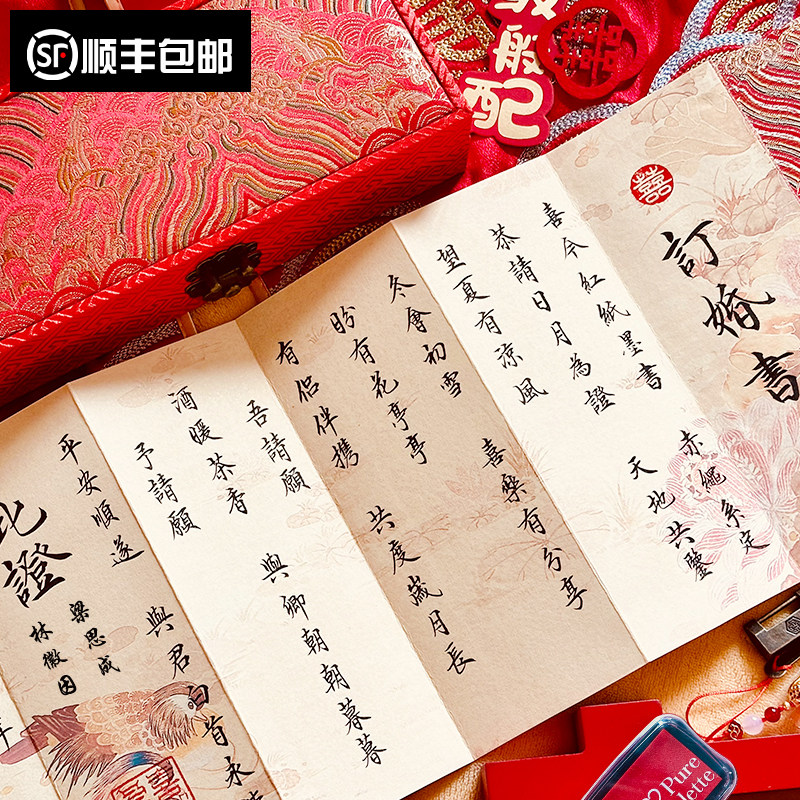 SF 顺丰包邮
般配
囍
訂婚書
喜今紅紙墨書 赤繩系定
恭請日月為證 天地共鑒
望夏有涼風
冬會初雪 喜樂有分享
盼有花亭亭
有侶伴携 共度歲月長
吾請願
酒暖茶香 與卿朝朝暮暮
予請願
平安順遂 與君白首永
此證
梁思成
林徽因
年
囍
Pure
lette